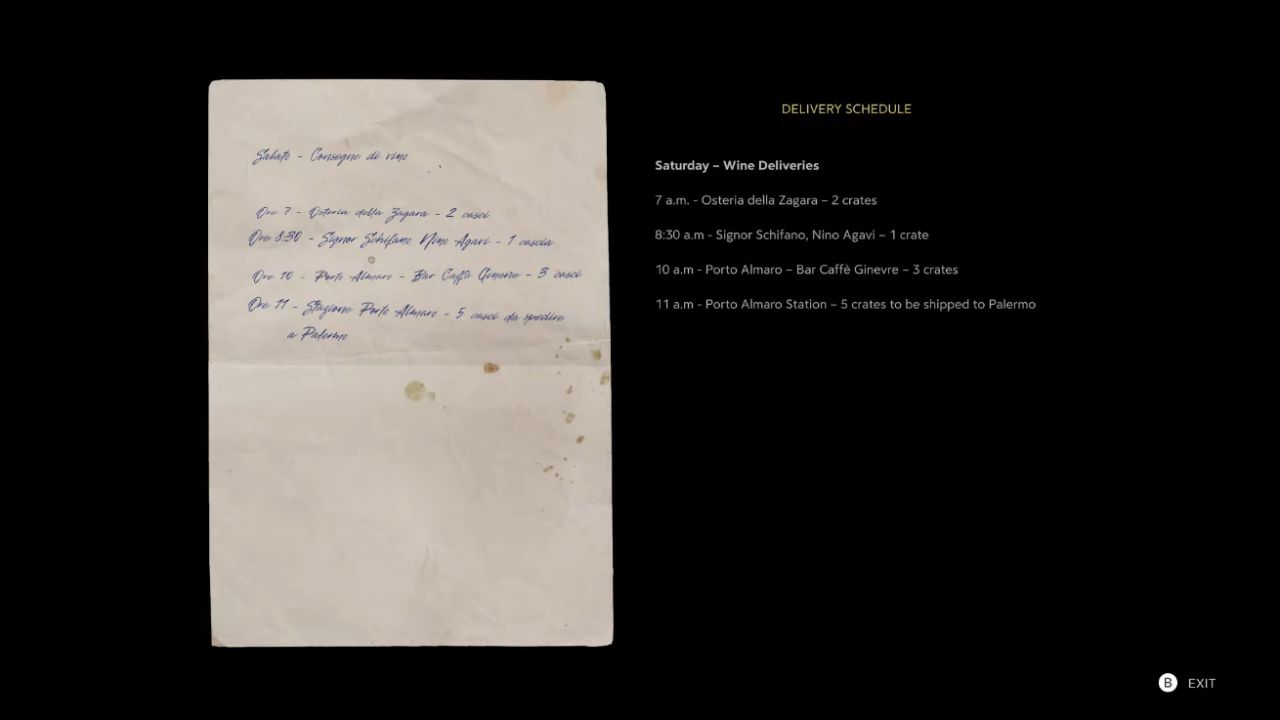 Sabato - Consegne di vino
Ore 7 - Osteria della Zagara - 2 casci
Ore 8:30 - Signor Schifano, Nino Agavi - 1 cascia
Ore 10 - Porto Almaro - Bar Caffè Ginevre - 3 casci
Ore 11 - Stazione Porto Almaro - 5 casci da spedire
a Palermo
DELIVERY SCHEDULE
Saturday – Wine Deliveries
7 a.m. - Osteria della Zagara – 2 crates
8:30 a.m - Signor Schifano, Nino Agavi – 1 crate
10 a.m - Porto Almaro – Bar Caffè Ginevre – 3 crates
11 a.m - Porto Almaro Station – 5 crates to be shipped to Palermo
B EXIT